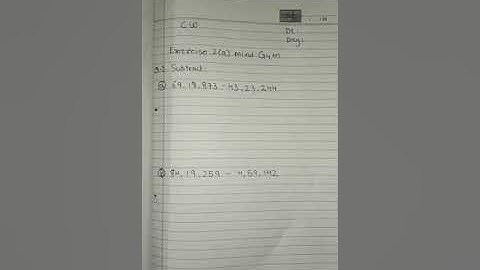 C.W
Dt:
Day:
Exercise 2(a) mind Gym
Subtract.
69,18,873 - 43,23,244
84,19,259 - 4,59,142